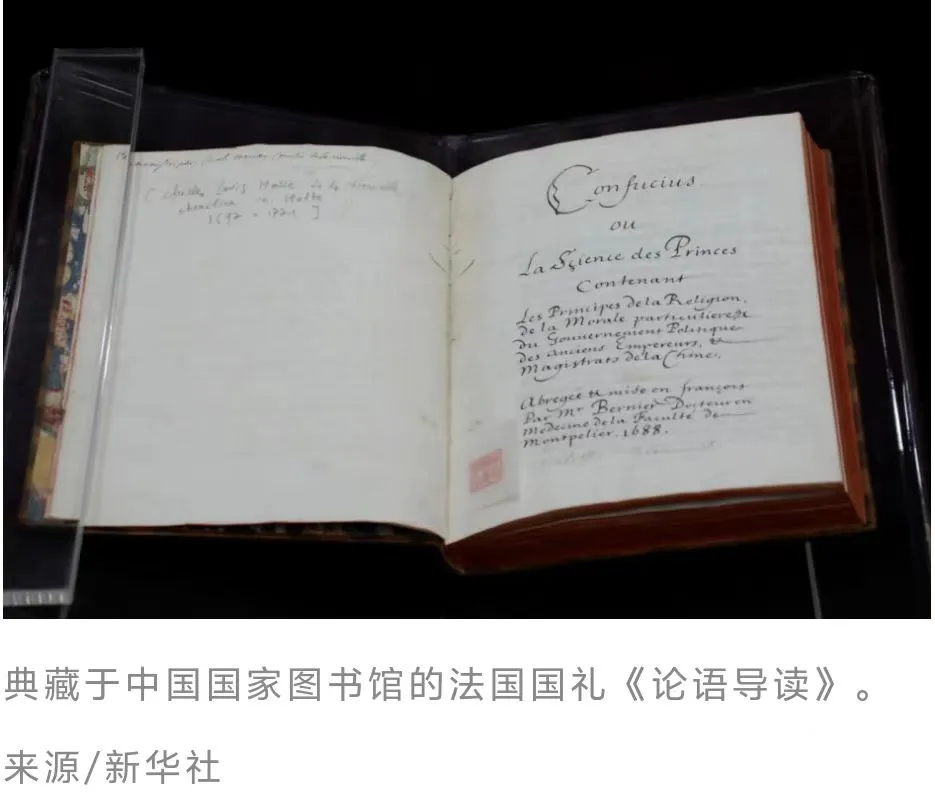 Charles Louis Marie de la
Malte
Confucius
ou
La Sçience des Princes
Contenant
Les Principes de la Religion,
de la Morale particuliere, &
du Gouvernement Politique
des anciens Empereurs, &
Magistrats de la Chine.
Abregée & mise en françois
Par Mr Bernier Docteur en
Medecine de la Faculté de
Montpelier. 1688.
典藏于中国国家图书馆的法国国礼《论语导读》。
来源/新华社